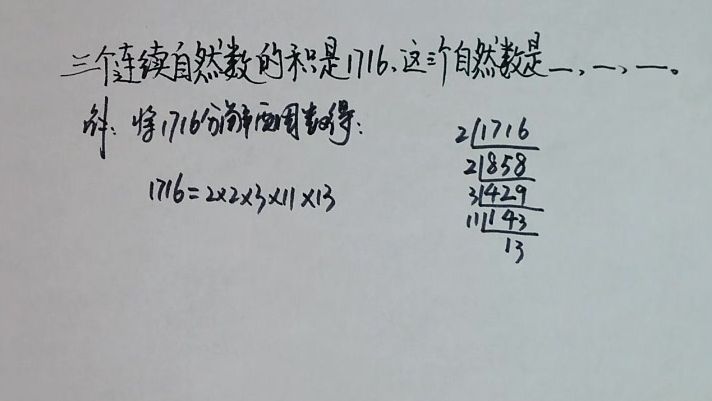 三个连续自然数的积是1716,这三个自然数是一、一、一。
解:将1716分解质因数得:
1716=2×2×3×11×13
2|1716
2|858
3|429
11|143
13